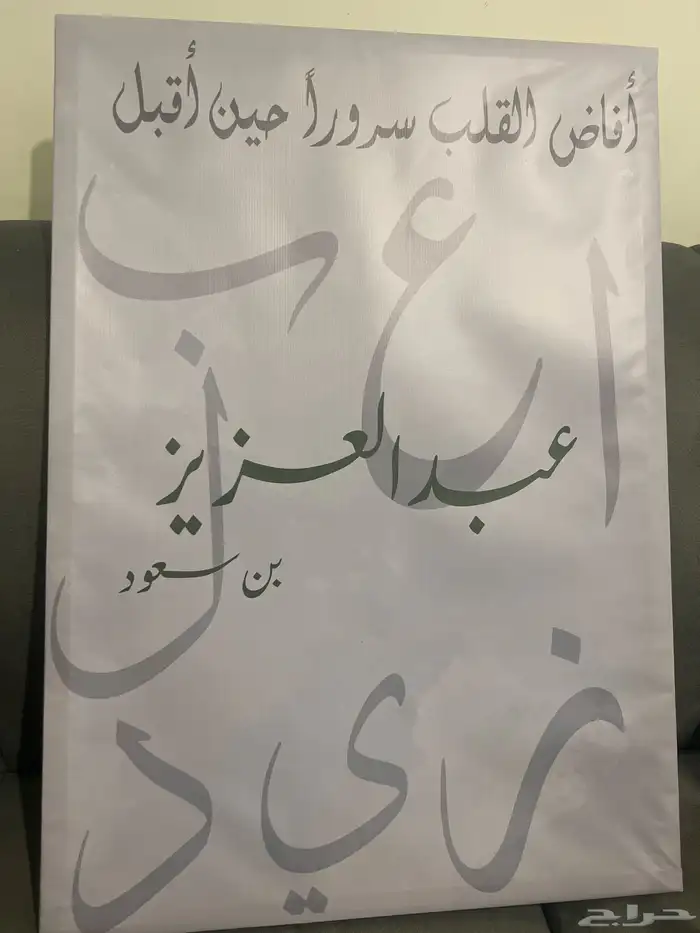 أفاض القلب سروراً حين أقبل
ا ع ب
عبدالعزيز
بن سعود
ل
ز ي د
حراج